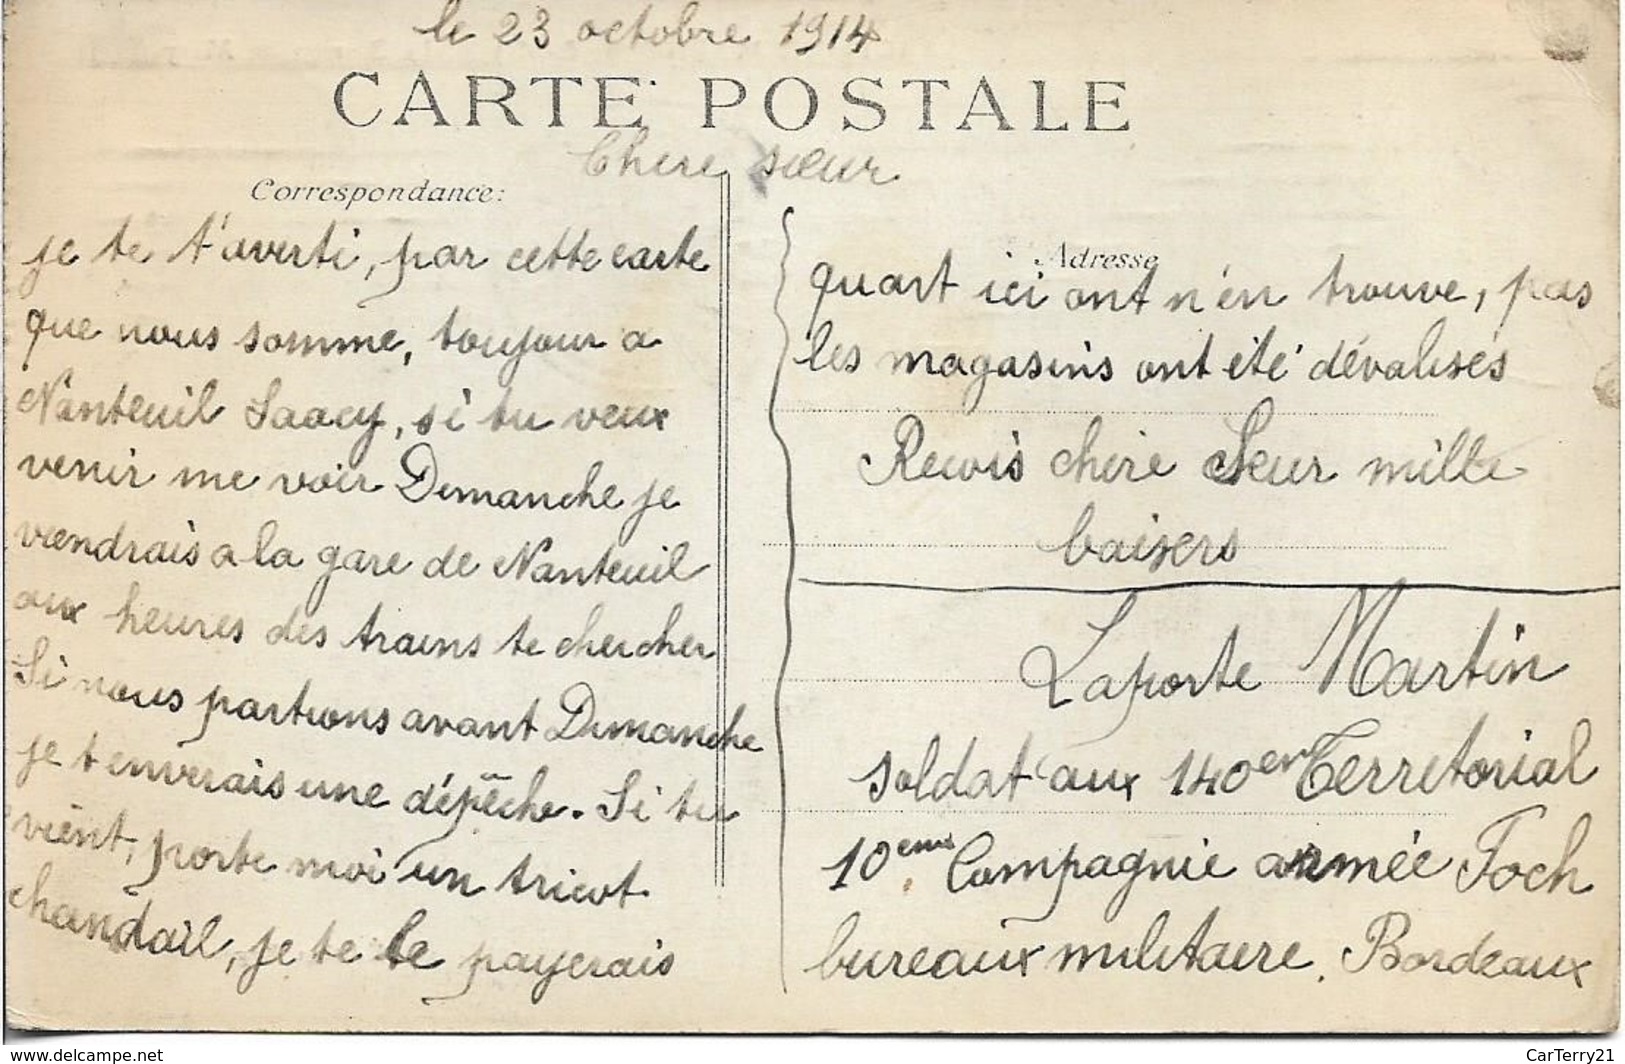 le 23 octobre 1914
CARTE POSTALE
Chere sœur
Correspondance:
je te t'averti, par cette carte
que nous somme, toujour a
Nanteuil Saacy, si tu veux
venir me voir Dimanche je
viendrais a la gare de Nanteuil
aux heures des trains te chercher
Si nous partions avant Dimanche
je t enverais une dépêche. Si tu
vient, porte moi un tricot
chandail, je te le payerais
Adresse
quart ici ont n'en trouve, pas
les magasins ont été dévalisés
Recois chere Seur mille
baisers
Laporte Martin
soldat aux 140em Terretorial
10eme Compagnie armée Foch
bureaux militaere. Bordeaux
www.delcampe.net
CarTerry21